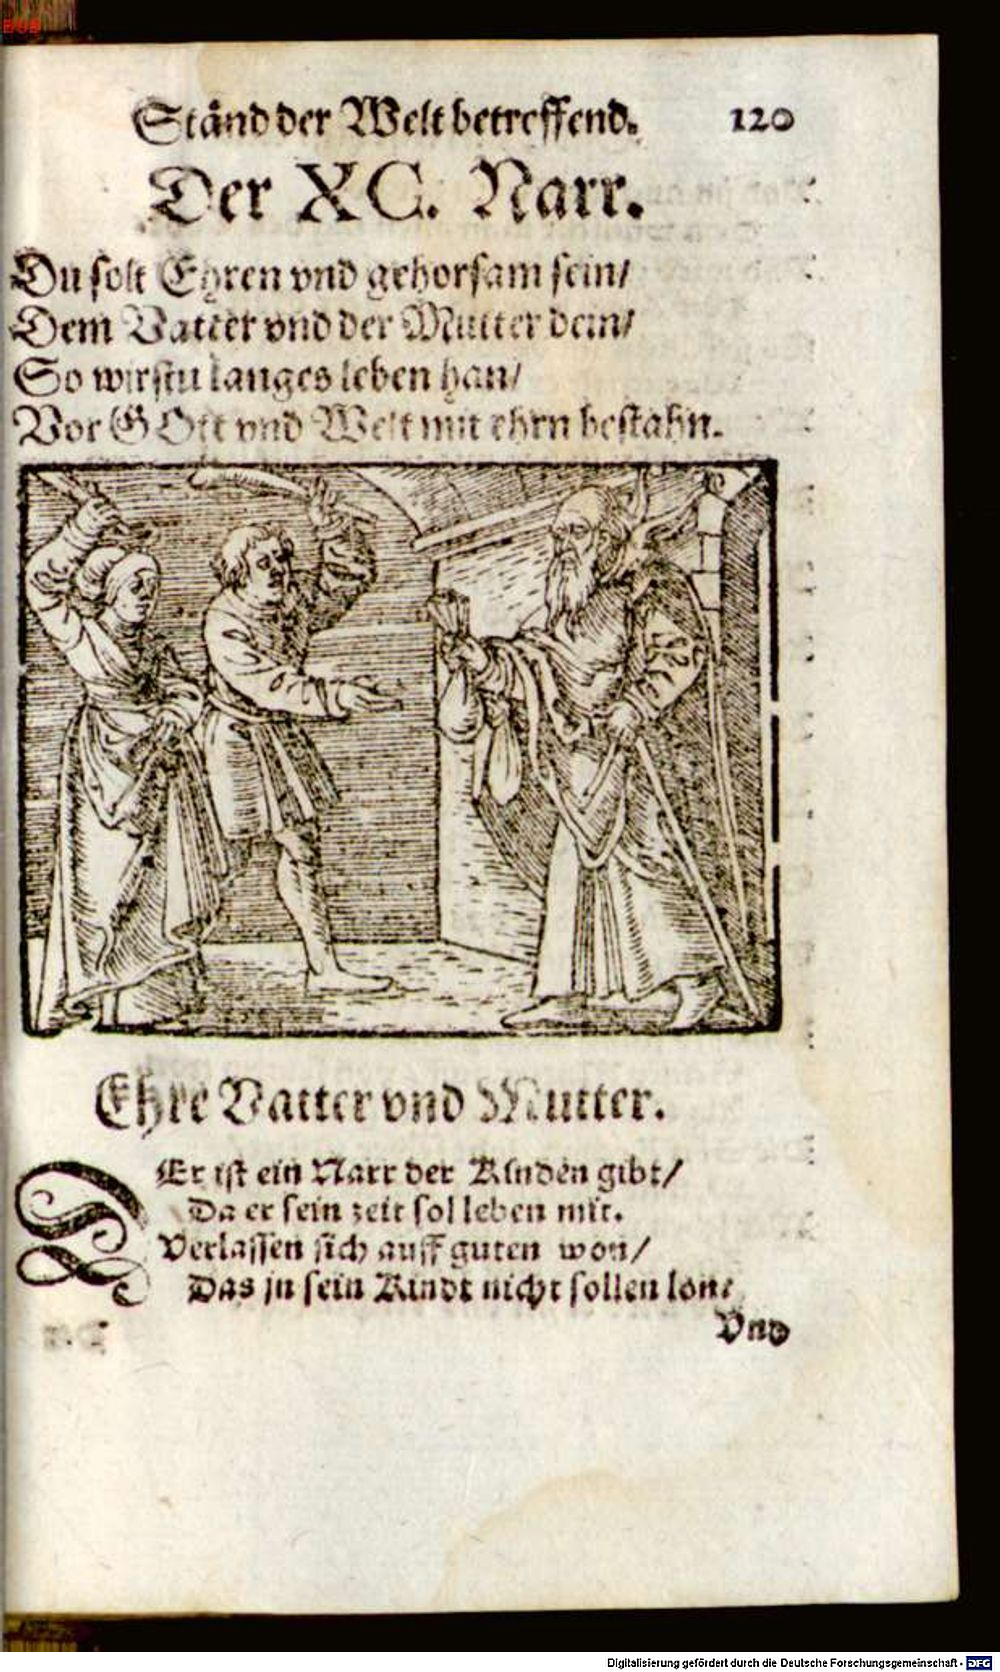 BSB
Stånd der Welt betreffend. 120
Der XC. Narr.
Du solt Ehren vnd gehorsam sein/
Dem Vatter vnd der Mutter dein/
So wirstu langes leben han/
Vor GOtt vnd Welt mit ehrn bestahn.
Ehre Vatter vnd Mutter.
DEr ist ein Narr der Kinden gibt/
Da er sein zeit sol leben mit.
Verlassen sich auff guten won/
Das jn sein Kindt nicht sollen lon/
Vnd
Digitalisierung gefördert durch die Deutsche Forschungsgemeinschaft - DFG